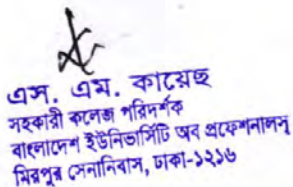 এস. এম. কায়েছ
সহকারী কলেজ পরিদর্শক
বাংলাদেশ ইউনিভার্সিটি অব প্রফেশনালস্
মিরপুর সেনানিবাস, ঢাকা-১২১৬